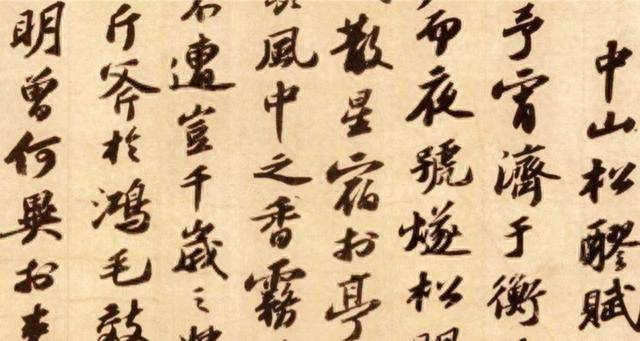 中山松醪賦
予宵濟于衡
而夜號燧松明
散星宿於亭
風中之香霧
不遭豈千歲之
斤斧於鴻毛效
明曾何異於束